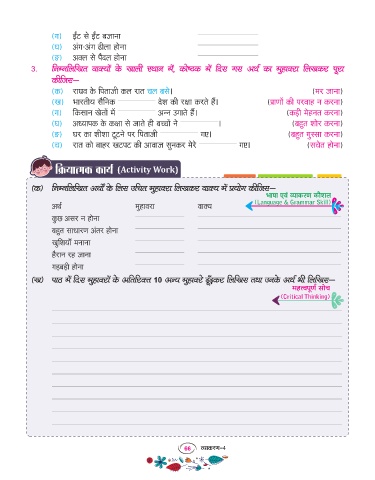 (ग) ईंट से ईंट बजाना
(घ) अंग-अंग ढीला होना
(ङ) अक्ल से पैदल होना
3. निम्नलिखित वाक्यों के खाली स्थान में, कोष्ठक में दिए गए अर्थ का मुहावरा लिखकर पूरा
कीजिए—
(क) राघव के पिताजी कल रात चल बसे। (मर जाना)
(ख) भारतीय सैनिक देश की रक्षा करते हैं। (प्राणों की परवाह न करना)
(ग) किसान खेतों में अन्न उगाते हैं। (कड़ी मेहनत करना)
(घ) अध्यापक के कक्षा से जाते ही बच्चों ने । (बहुत शोर करना)
(ङ) घर का शीशा टूटने पर पिताजी गए। (बहुत गुस्सा करना)
(च) रात को बाहर खटपट की आवाज़ सुनकर मेरे गए। (सचेत होना)
क्रियात्मक कार्य (Activity Work)
(क) निम्नलिखित अर्थों के लिए उचित मुहावरा लिखकर वाक्य में प्रयोग कीजिए—
भाषा एवं व्याकरण कौशल
(Language & Grammar Skill)
अर्थ मुहावरा वाक्य
कुछ असर न होना
बहुत साधारण अंतर होना
खुशियाँ मनाना
हैरान रह जाना
गड़बड़ी होना
(ख) पाठ में दिए मुहावरों के अतिरिक्त 10 अन्य मुहावरे ढूँढ़कर लिखिए तथा उनके अर्थ भी लिखिए—
महत्त्वपूर्ण सोच
(Critical Thinking)
66 व्याकरण-4